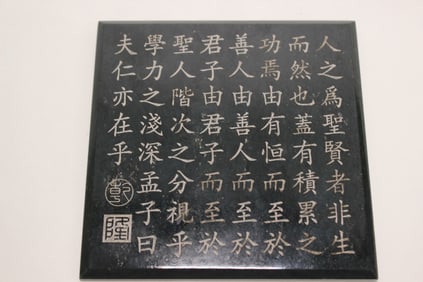 人之爲聖賢者非生
而然也蓋有積累之
功焉由有恒而至於
善人由善人而至於
君子由君子而至於
聖人階次之分視乎
學力之淺深孟子曰
夫仁亦在乎
乾
隆